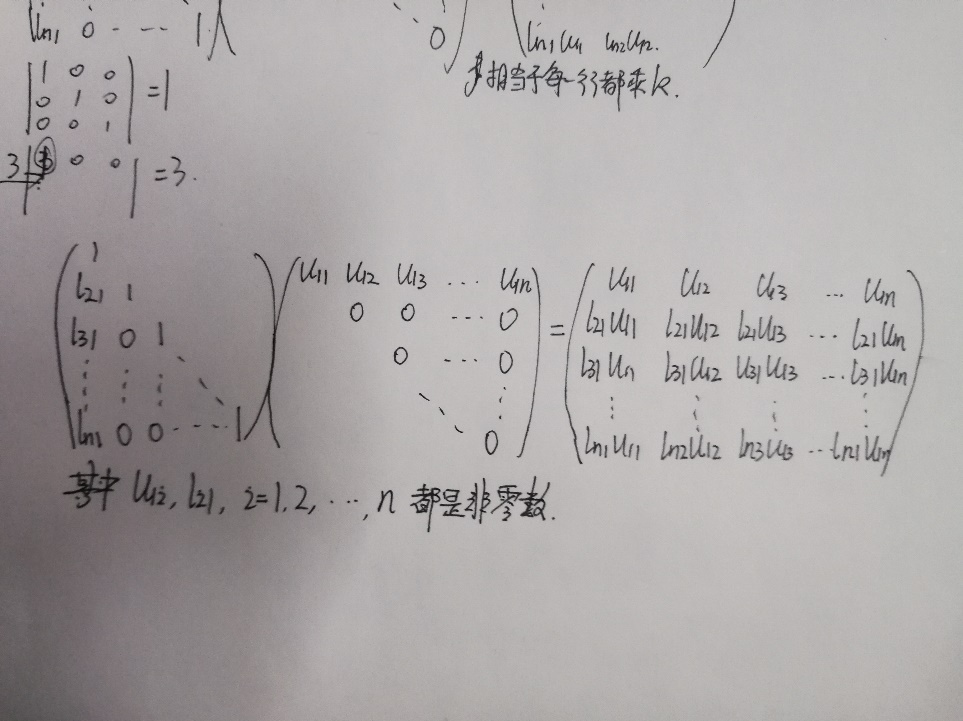 ln1 0 ---- 1
0
ln1u11 ln2u12.
相当于每一行都乘k.
|1 0 0
0 1 0
0 0 1| =1
3 | 0 0 | =3.
1
l21 1
l31 0 1
⋮ ⋮ ⋮ ⋱
ln1 0 0 ---- 1
u11 u12 u13 ... u1n
0 0 ---- 0
0 ---- 0
⋱ ⋮
0
=
u11 u12 u13 ... u1n
l21u11 l21u12 l21u13 ... l21u1n
l31u11 l31u12 u31u13 ... l31u1n
⋮ ⋮ ⋮ ⋮
ln1u11 ln2u12 ln3u13 ... ln1u1n
其中 u1i, l21, i=1.2, ..., n 都是非零数.